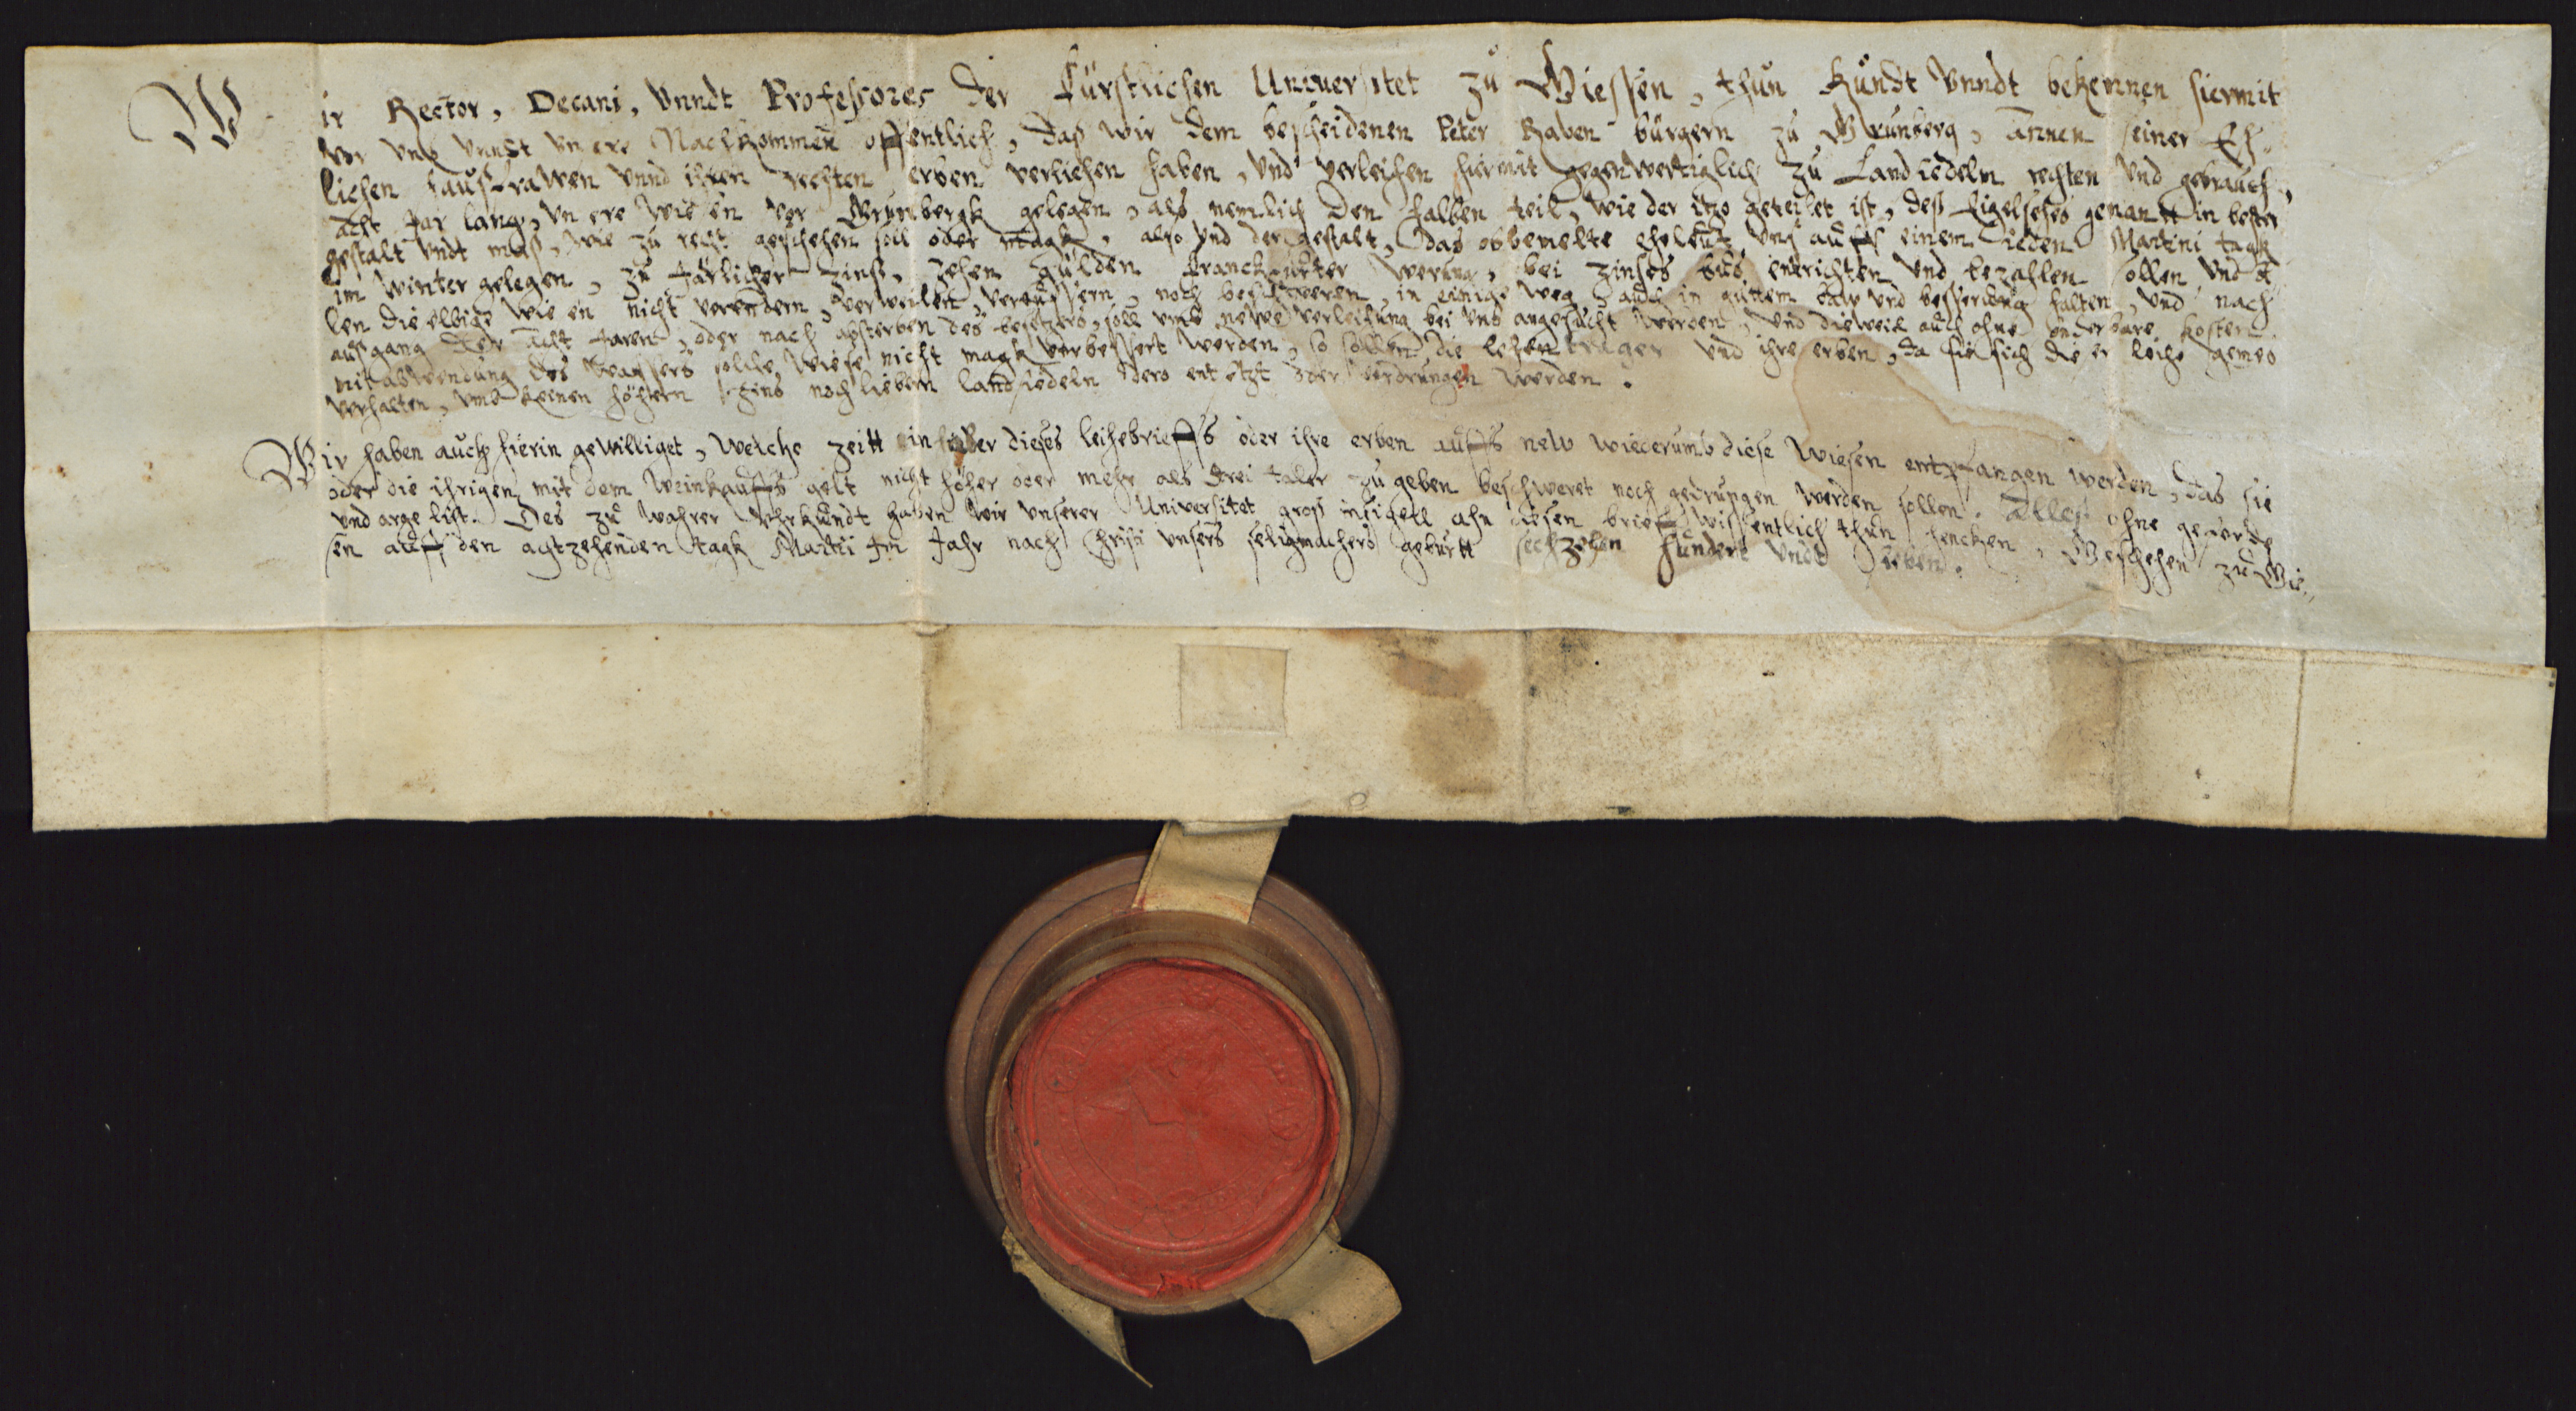 Wir Rector, Decani, Vnndt Professores der Fürstlichen Vniuersitet zu Giessen, thun kundt Vnndt bekennen hiermit
vor vns Vnndt vnsere Nachkommen offentlich, das wir dem bescheidenen Peter Raben bürgern zu Grünberg, Annen seiner Eh„
lichen hausfrawen vnnd ihren rechten erben verliehen haben, vnd verleihen hiermit gegenwertiglich zu Landsiedeln rechten vnd gebrauch,
acht Jar lang, vnsere wiesen vor Grünbergk gelegen, als nemlich den halben teil, wie der itzo geteilet ist, des genantt in bester
gestalt vndt mas, wie zu recht geschehen soll oder magk, also vnd der gestalt, das obbemelte eheleut vns auff einem ieden Martini tagk
im winter gelegen, zu Järlicher zins, zehen gülden Franckfurter werung, bei zinses bus entrichten vnd bezahlen sollen vnd sol
len dieselbige wiesen nicht verendern, verweilen, vereussern, noch beschweren, in einige weg, auch in guttem baw vnd besserung halten, vnd nach
ausgang der acht Jaren, oder nach absterben des besetzers, soll vmb newe verleihung bei vns angesucht werden, vnd dieweil auch ohne sonderbare kosten
mit abwendung des wassers solche wiese nicht magk verbessert werden, so sollen die lehentrager vnd ihre erben, da sie sich dieser leihe gemes
verhalten, vmb keinen höhern zins noch liebern landsiedeln dero entsetzt oder verdrungen werden.
Wir haben auch hierin gewilliget, welche zeitt inhaber dieses leihebrieffs oder ihre erben auffs new wiederumb diese wiesen entpfangen werden, das sie
oder die ihrigen mit dem weinkauffs gelt nicht höher oder mehr als drei taler zu geben beschweret noch gedrungen werden sollen. Alles ohne geferde
vnd arge list. Des zu wahrer vhrkundt haben wir vnserer Vniversitet gros insigell ahn diesen brieff wissentlich thun hencken, Geschehen zu Gie„
sen auff den achtzehenden tagk Martii Im Jahr nach Christi vnsers seligmachers geburtt sechzehen hundert vndt sieben.